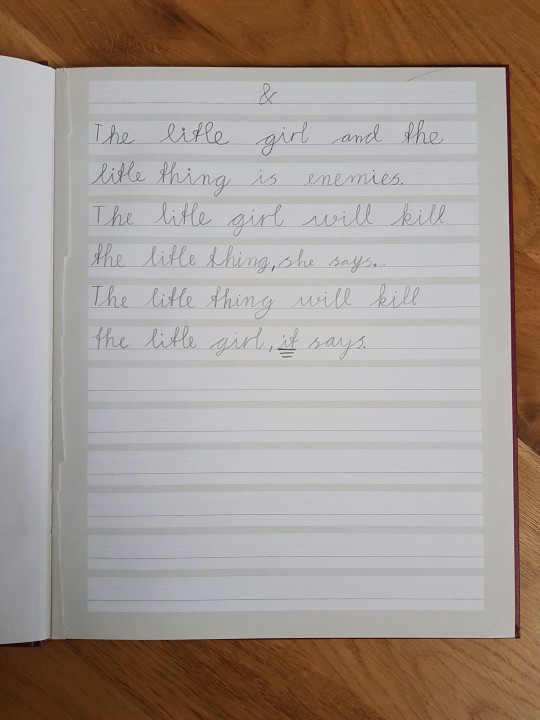 &
The little girl and the
little thing is enemies.
The little girl will kill
the little thing, she says.
The little thing will kill
the little girl, it says.